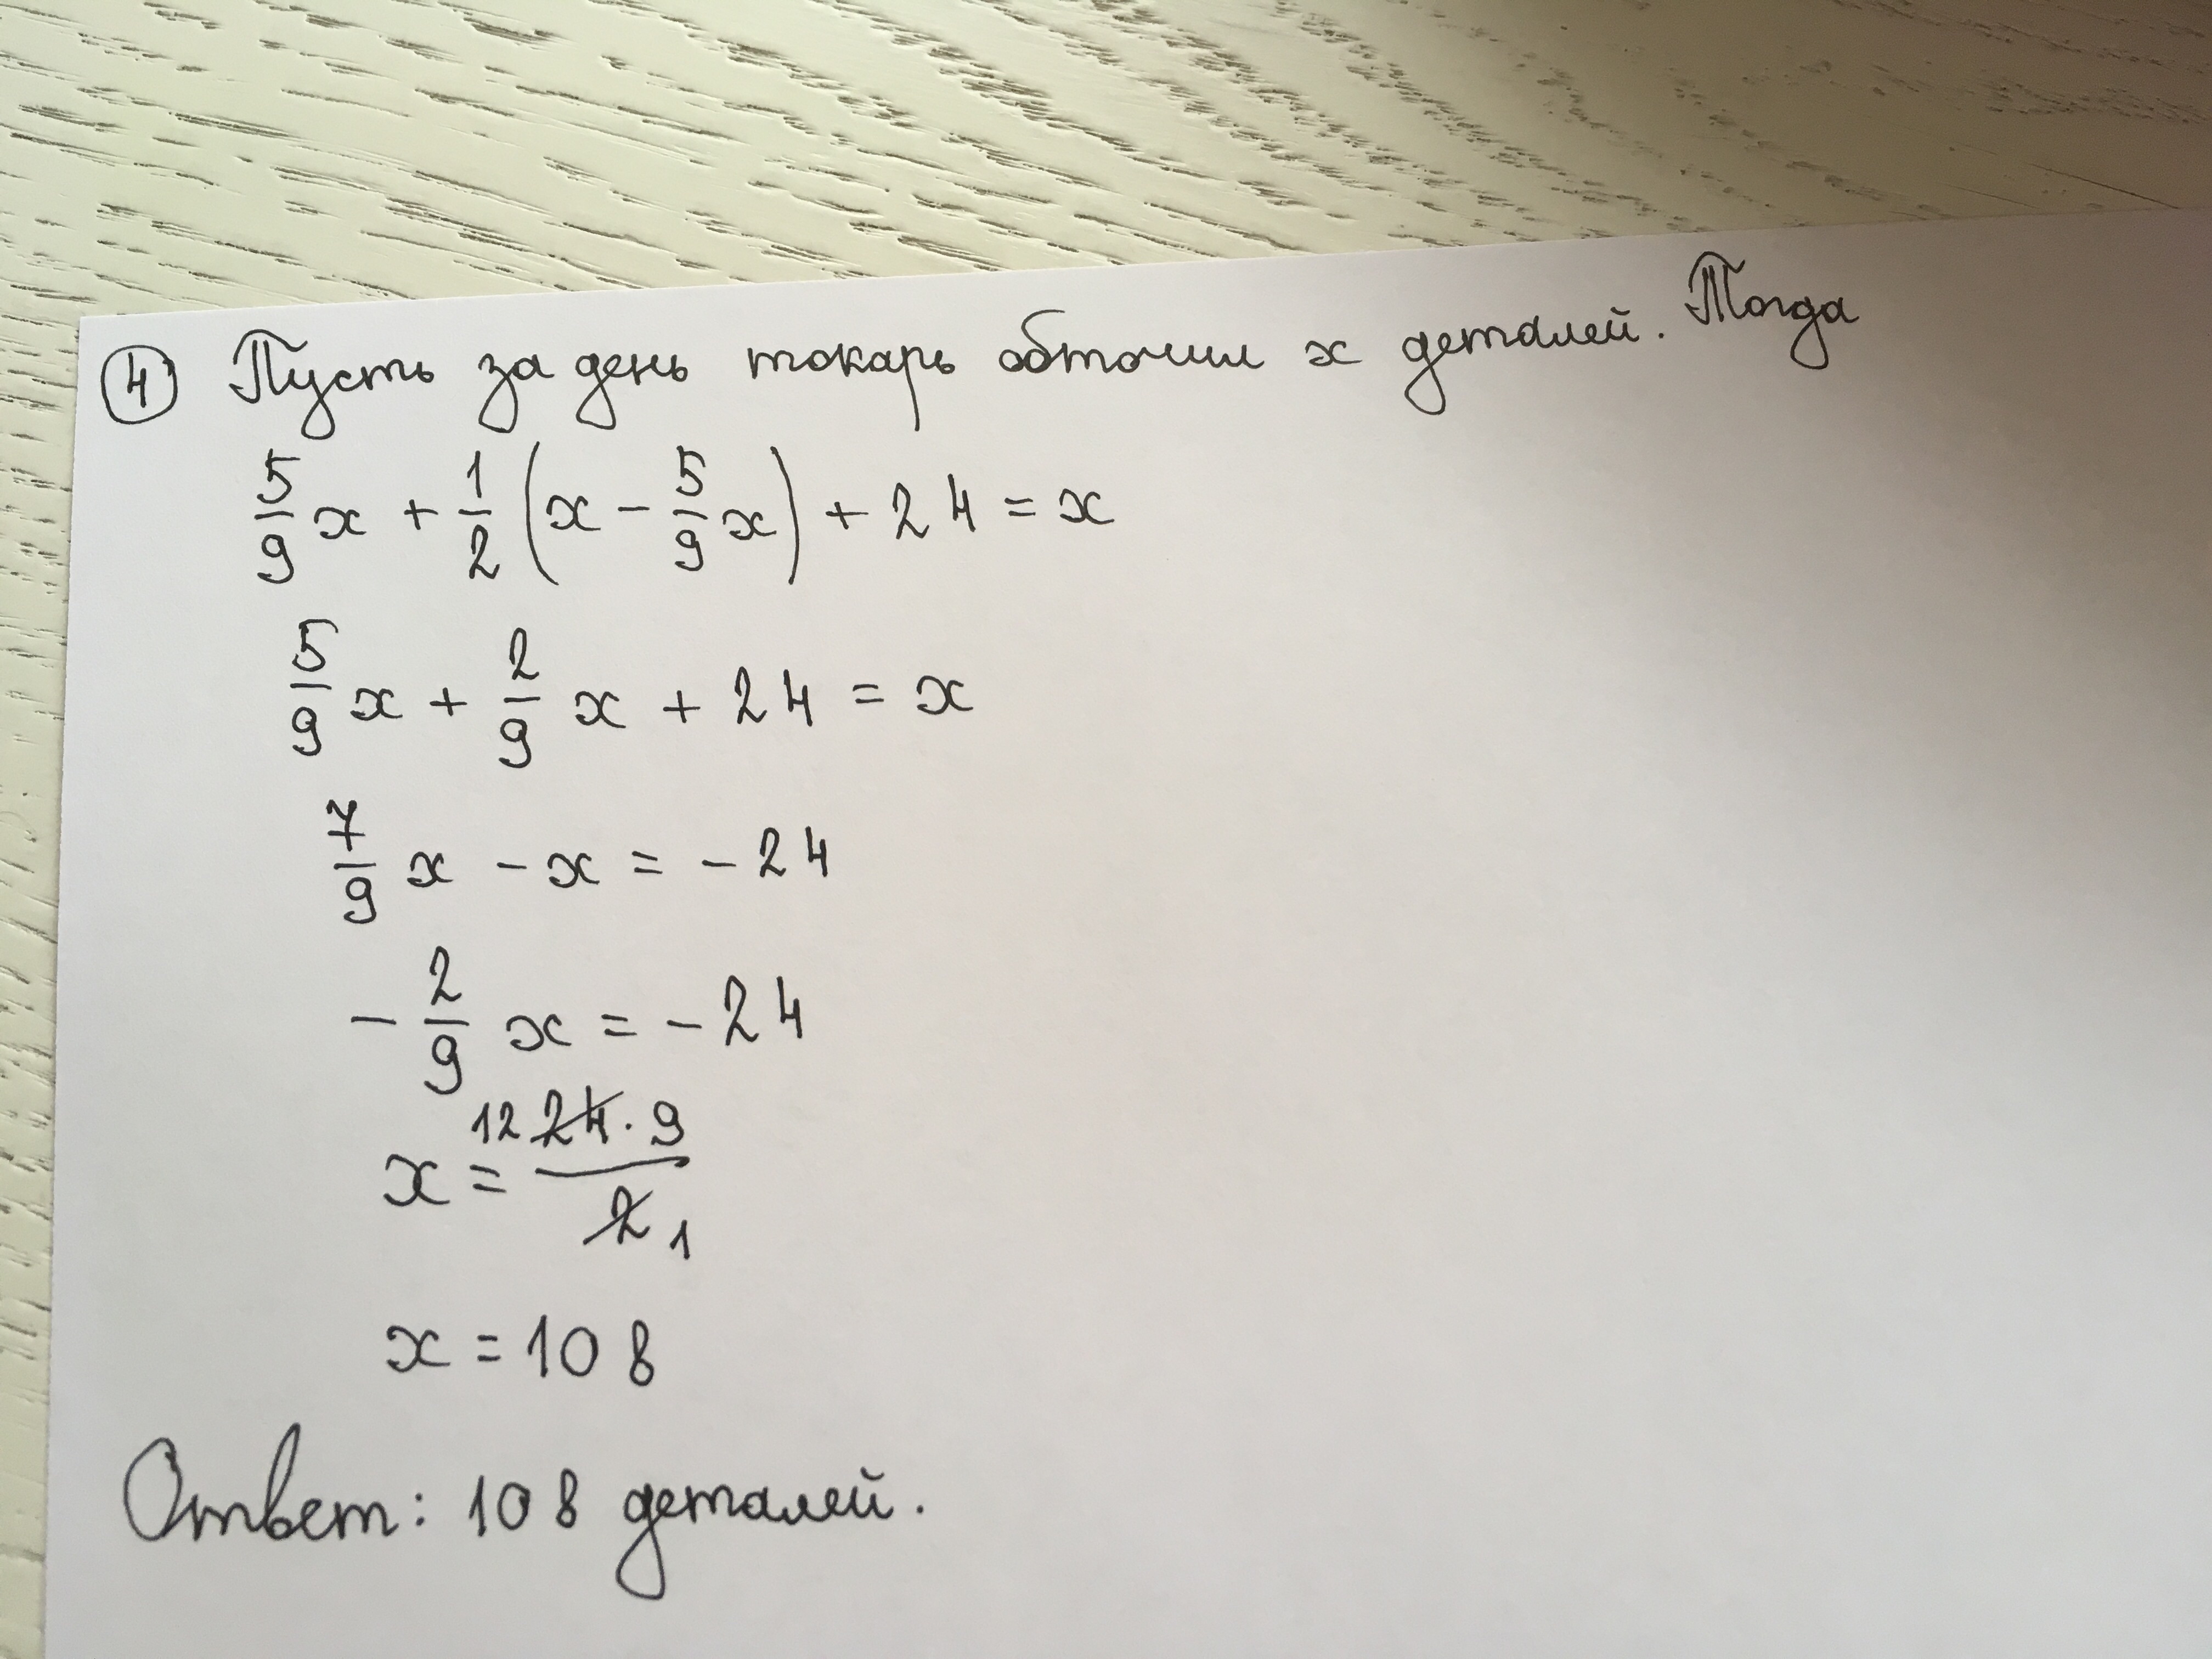 ④ Пусть за день токарь обточил x деталей. Тогда
5/9 x + 1/2 (x - 5/9 x) + 24 = x
5/9 x + 2/9 x + 24 = x
7/9 x - x = -24
- 2/9 x = -24
x = 12 24 · 9 / 2 1
x = 108
Ответ: 108 деталей.